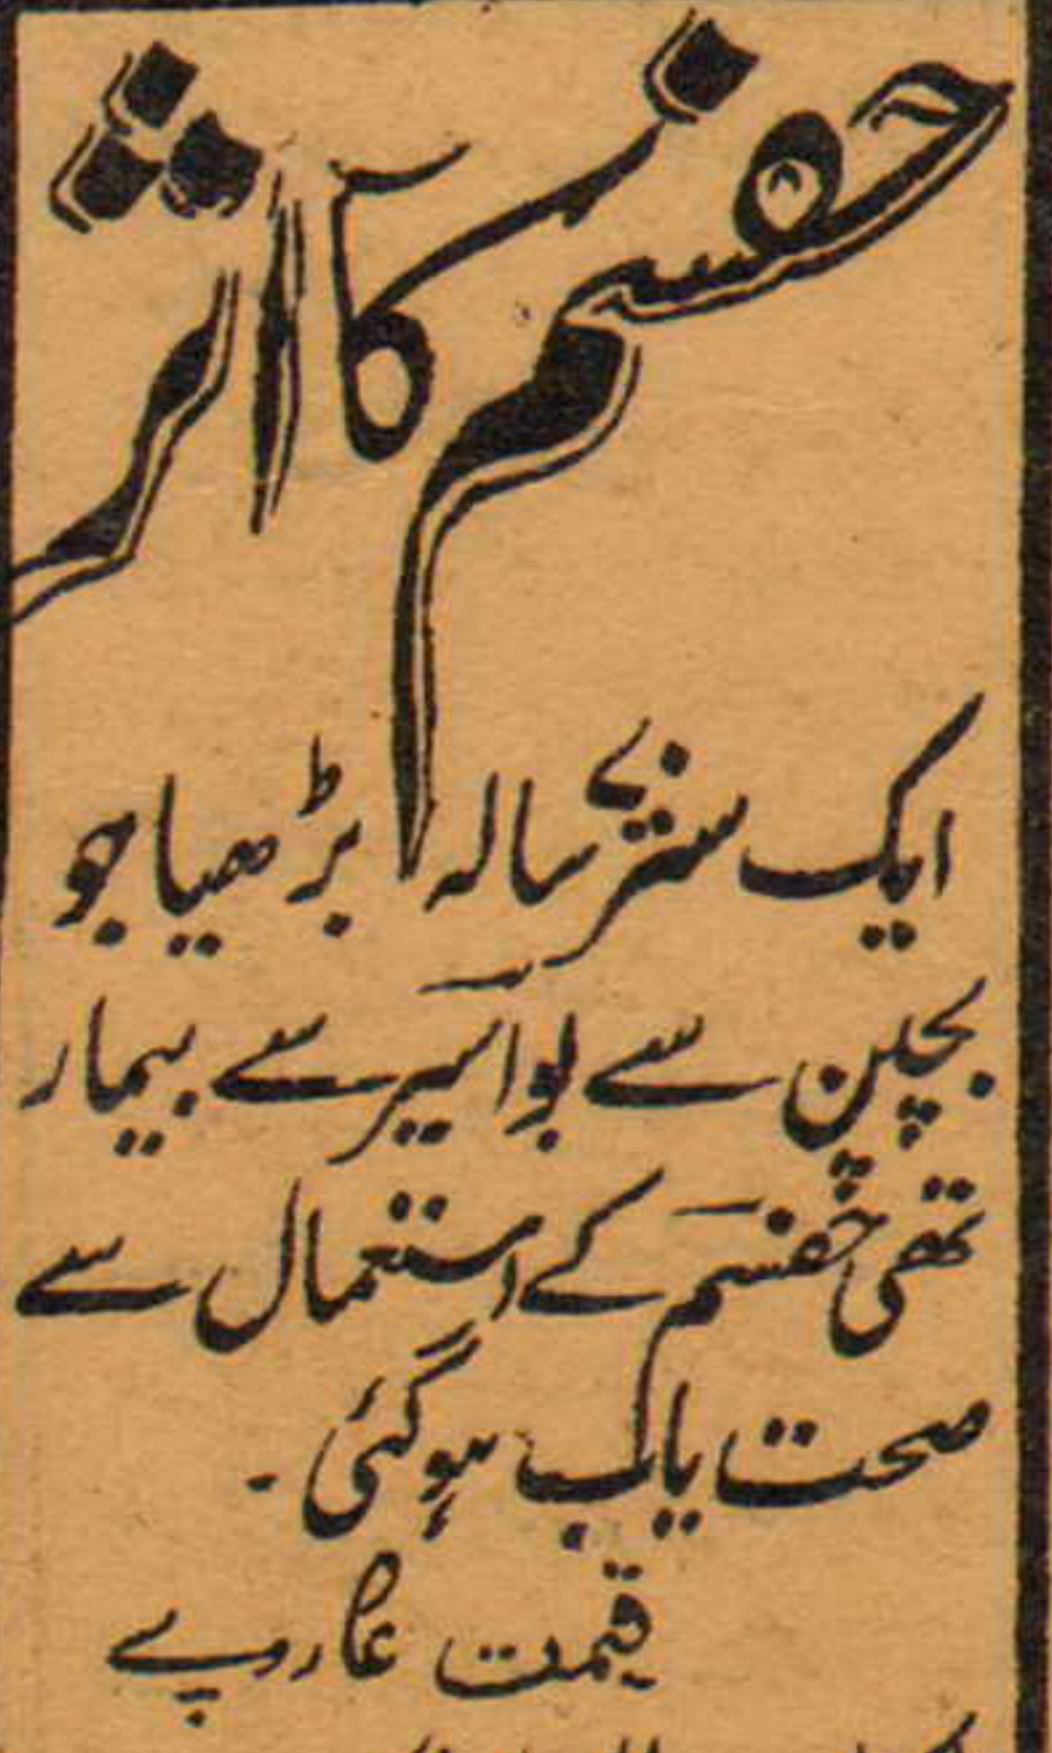 حفسم کا اثر
ایک ستر سالہ بڑھیا جو
بچپن سے بواسیر سے بیمار
تھی حفسم کے استعمال سے
صحت یاب ہو گئی۔
قیمت روپے